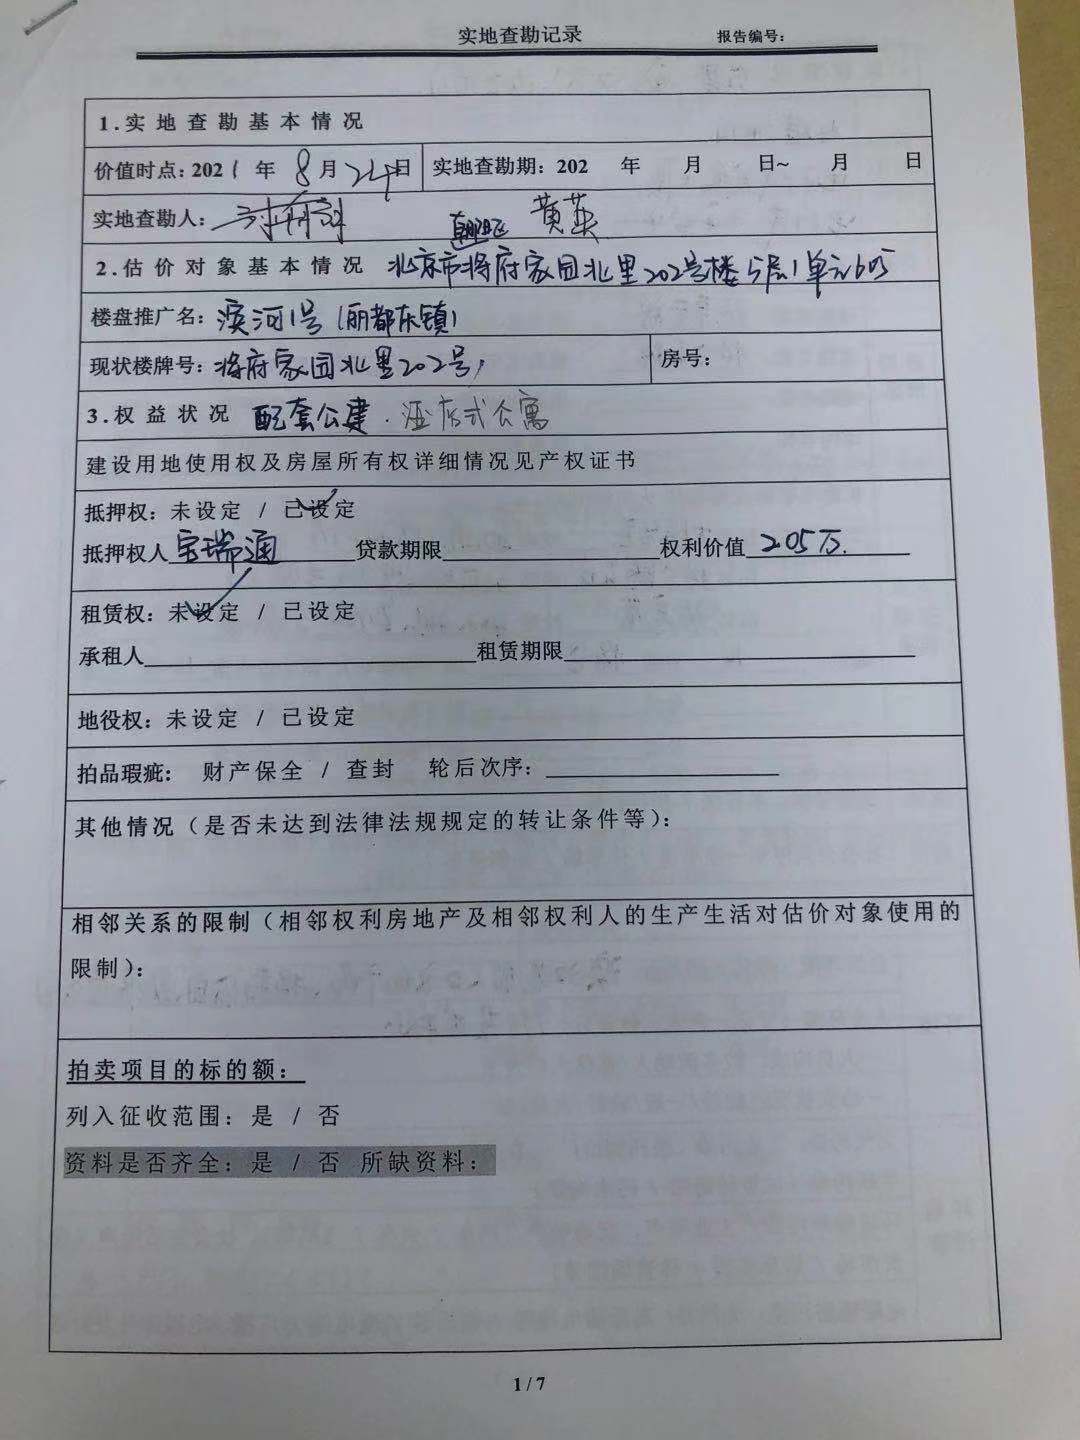 实地查勘记录 报告编号：
1.实地查勘基本情况
价值时点：2021年8月24日 实地查勘期：202 年 月 日~ 月 日
实地查勘人： 黄英
朝阳区
2.估价对象基本情况 北京市将府家园北里202号楼5层1单元605
楼盘推广名：滨河1号（丽都东镇）
现状楼牌号：将府家园北里202号， 房号：
3.权益状况 配套公建．酒店式公寓
建设用地使用权及房屋所有权详细情况见产权证书
抵押权：未设定 / 已设定
抵押权人宝瑞通 贷款期限 权利价值 205万.
租赁权：未设定 / 已设定
承租人 租赁期限
地役权：未设定 / 已设定
拍品瑕疵： 财产保全 / 查封 轮后次序：
其他情况（是否未达到法律法规规定的转让条件等）：
相邻关系的限制（相邻权利房地产及相邻权利人的生产生活对估价对象使用的
限制）：
拍卖项目的标的额：
列入征收范围：是 / 否
资料是否齐全：是 / 否 所缺资料：
1 / 7